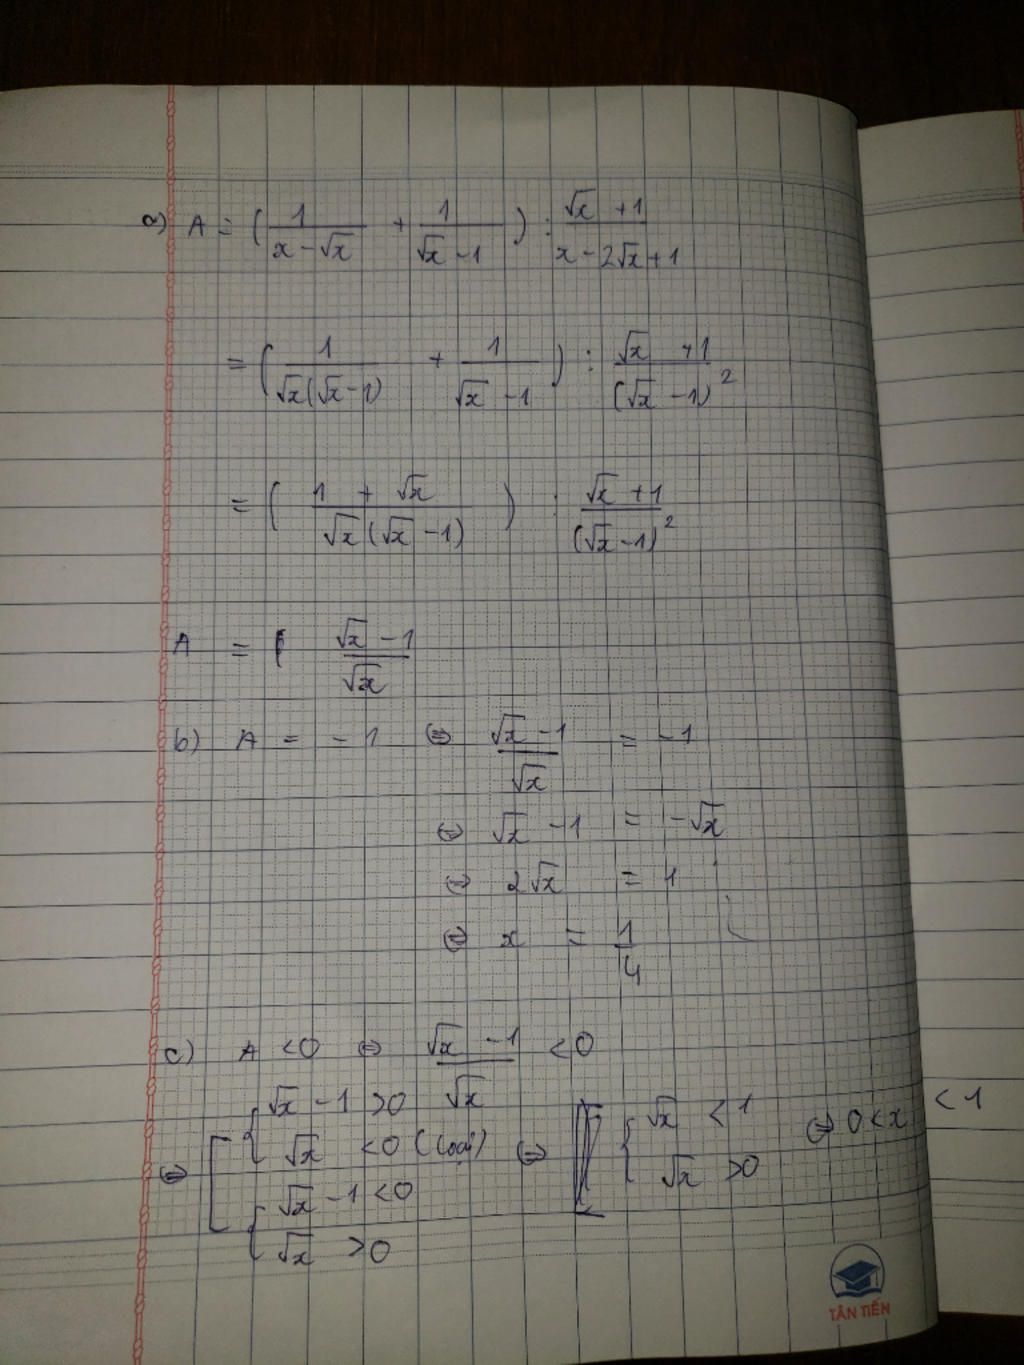 a) A = ( 1/(x - √x) + 1/(√x - 1) ) : (√x + 1)/(x - 2√x + 1)
= ( 1/(√x(√x - 1)) + 1/(√x - 1) ) : (√x + 1)/(√x - 1)²
= ( (1 + √x)/(√x(√x - 1)) ) : (√x + 1)/(√x - 1)²
A = (√x - 1)/√x
b) A = -1 ⇔ (√x - 1)/√x = -1
⇔ √x - 1 = -√x
⇔ 2√x = 1
⇔ x = 1/4
c) A < 0 ⇔ (√x - 1)/√x < 0
⇔ [ { √x - 1 > 0
√x < 0 (loại)
{ √x - 1 < 0
√x > 0
⇔ { √x < 1
√x > 0
⇔ 0 < x < 1
TÂN TIẾN